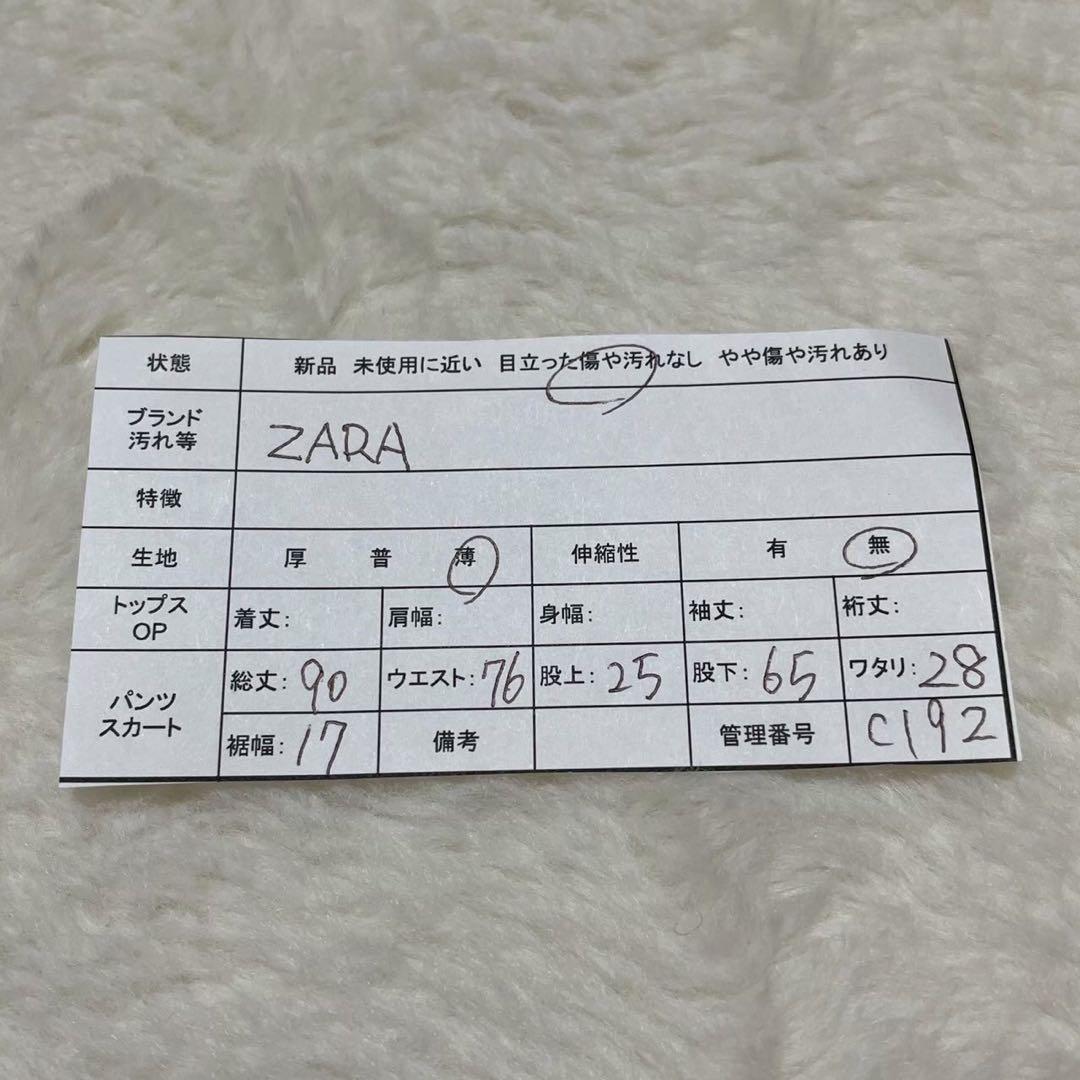 状態 新品 未使用に近い 目立った傷や汚れなし やや傷や汚れあり
ブランド
汚れ等 ZARA
特徴
生地 厚 普 薄 伸縮性 有 無
トップス
OP 着丈: 肩幅: 身幅: 袖丈: 裄丈:
パンツ
スカート 総丈:90 ウエスト:76 股上:25 股下:65 ワタリ:28
裾幅:17 備考 管理番号 C192